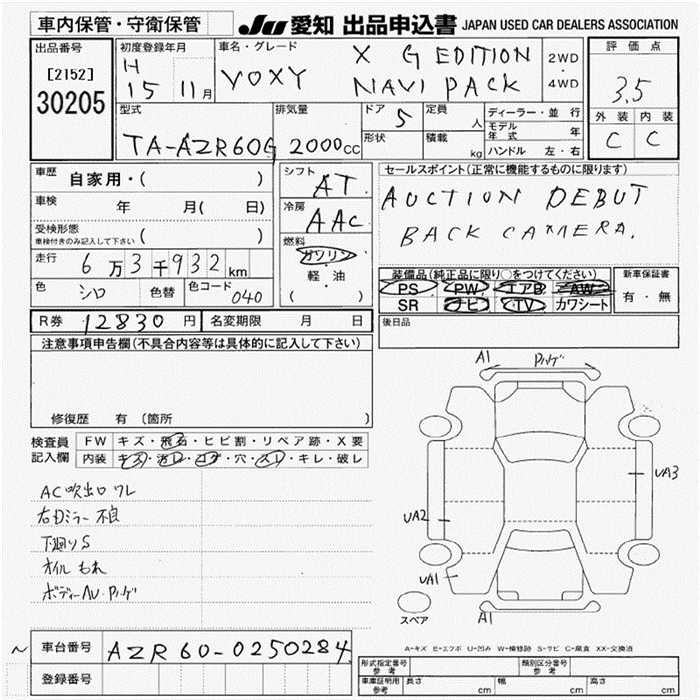 車内保管・守衛保管
JU 愛知 出品申込書 JAPAN USED CAR DEALERS ASSOCIATION
出品番号
[2152]
30205
初度登録年月
H
15 11月
車名・グレード
VOXY X G EDITION
NAVI PACK
2WD
・
4WD
評価点
3.5
外装 内装
C C
型式
TA-AZR60G
排気量
2000cc
ドア 5
形状
定員 人
積載 kg
ディーラー・並行
モデル年式 年
ハンドル 左・右
車歴 自家用・( )
車検 年 月( 日)
受検形態
車検付きのみ記入して下さい ( )
走行 6万3千932km
色 シロ 色替 色コード 040
シフト AT
冷房 AAC
燃料
ガソリン
・
軽・油
( )
セールスポイント(正常に機能するものに限ります)
AUCTION DEBUT
BACK CAMERA.
装備品(純正品に限り○をつけてください)
PS PW エアB AW
SR ナビ TV カワシート
新車保証書
有・無
R券 12830円 名変期限 月 日
後日品
注意事項申告欄(不具合内容等は具体的に記入して下さい)
修復歴 有 (箇所 )
検査員記入欄
FW キズ・飛石・ヒビ割・リペア跡・X要
内装 キズ・汚レ・コゲ・穴・スレ・キレ・破レ
AC吹出口ワレ
右Dミラー不良
下廻りS
オイルもれ
ボディーAU・Pハゲ
A1 Pハゲ
UA3
UA2
UA1
A1
スペア
A-キズ E-エクボ U-凹み W-補修跡 S-サビ C-腐食 XX-交換済
~ 車台番号 AZR60-0250284
登録番号
形式指定番号 参考
類別区分番号 参考
車庫証明用 参考 長さ cm 幅 cm 高さ cm